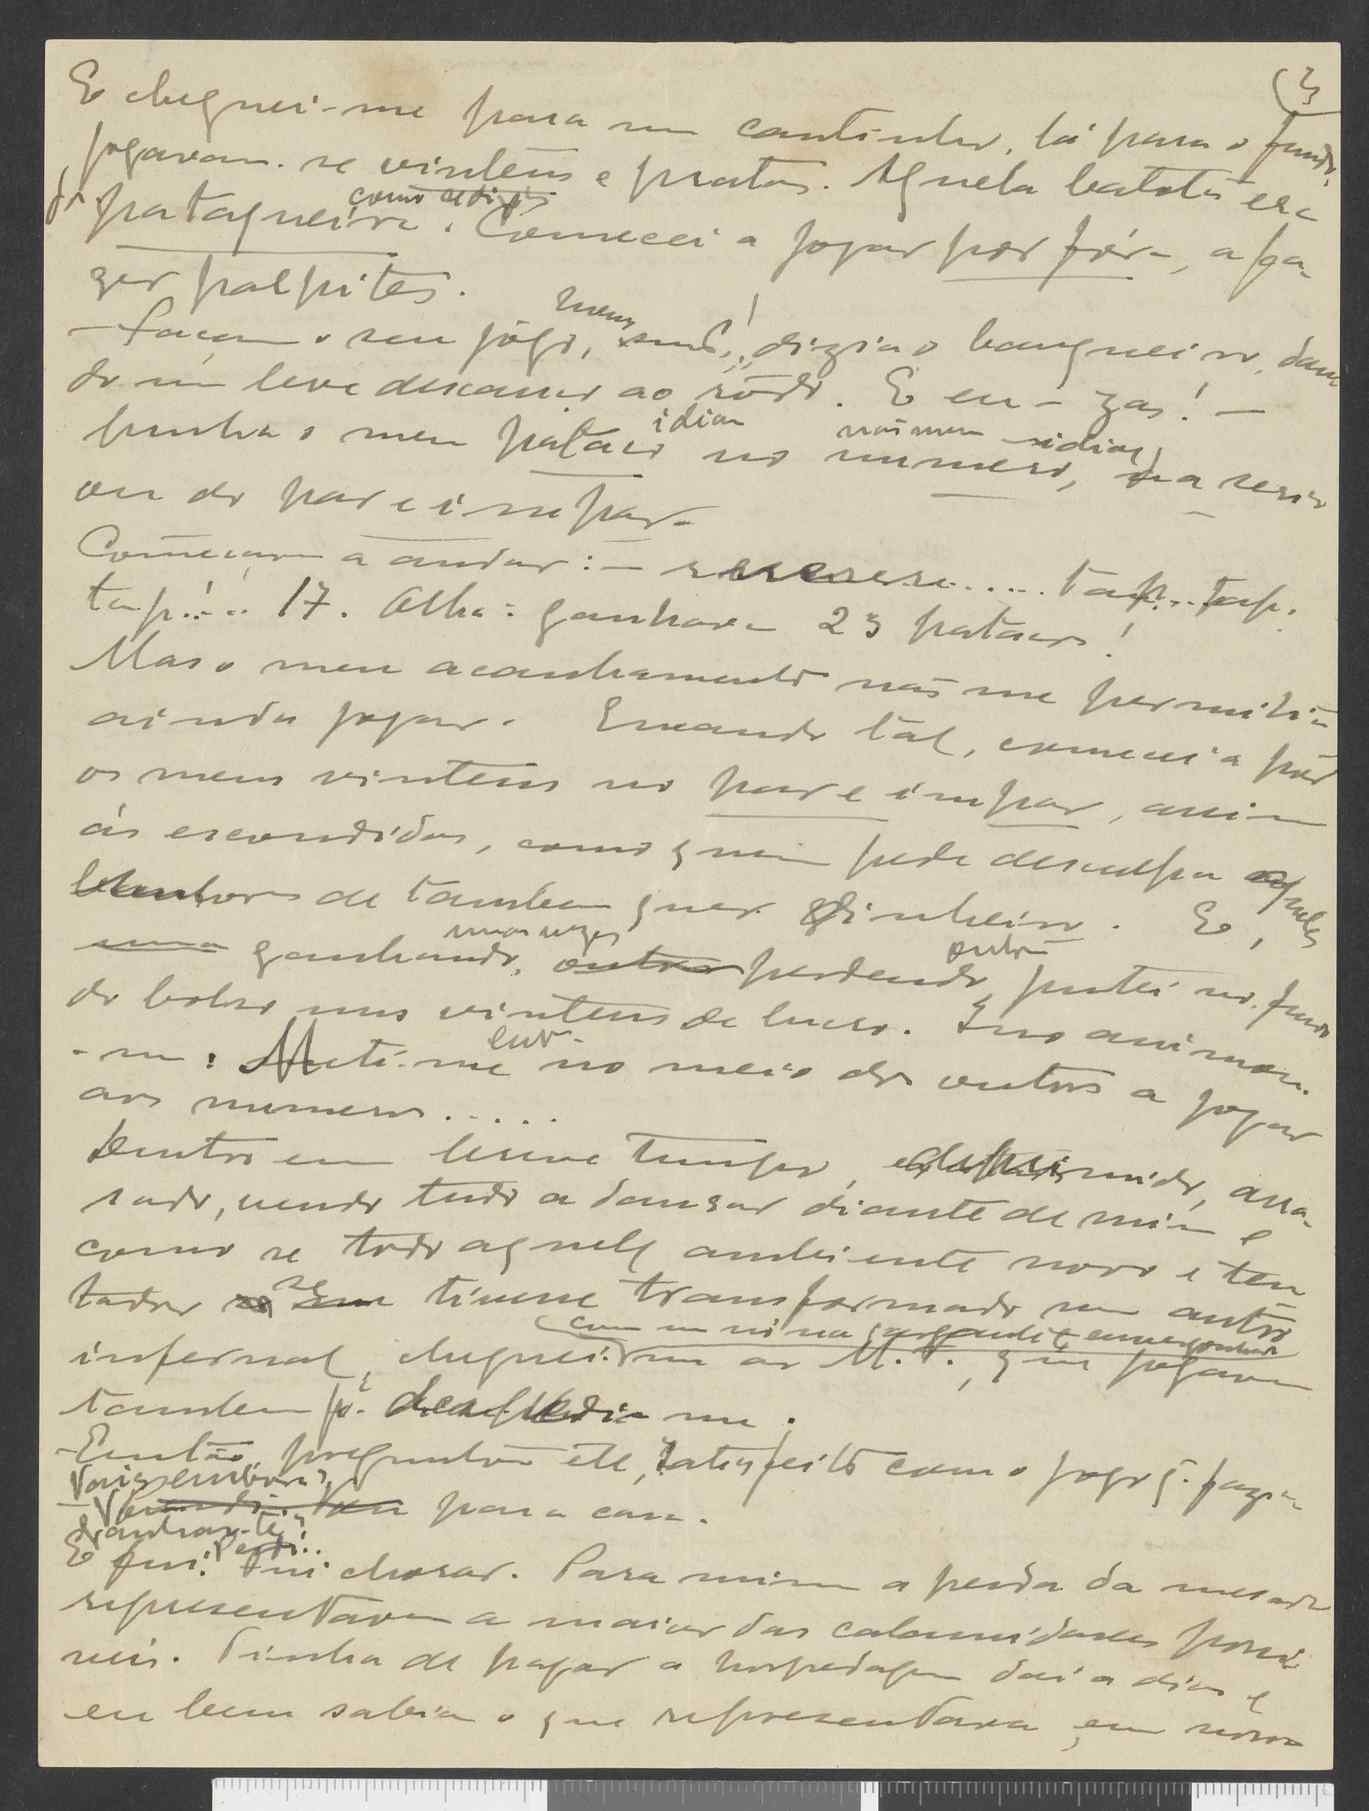 (3
E cheguei-me para um cantinho, lá para o fundo,
jogavam-se vintens e pratas. Aquela batota era
de pataqueira. como se diz Comecei a jogar por fóra, a fa-
zer palpites.
— Façam o seu jôgo, meus snrs.! dizia o banqueiro, dan-
do um leve descanço ao rôdo. E eu - zas! —
punha o meu pataco idial no numero, na serie
ou do par e impar.
Começava a andar: — rrrererere.... tap...tap.
tap!... 17. Olha: ganhara 23 patacos!
Mas o meu acanhamento não me permitia
ainda jogar. Enando tal, comecei a pôr
os meus vintens no par e impar, assim
ás escondidas, como quem pede desculpa aqueles
senhores de tambem querer dinheiro. E,
ganhando, umas vezes outras perdendo, juntei no fundo
do bolso uns vintens de lucro. Isso animou-
-me: Meti-me no meio dos outros a jogar
aos numeros.....
Dentro em breve tempo, deprimido, arra-
sado, vendo tudo a dansar diante de mim e
como se todo aquele ambiente novo e ten-
tador se tivesse transformado num antro
infernal, cheguei-me ao M. T., que jogava
tambem pª despedir-me.
— Então, preguntou ele, satisfeito com o jogo q. fazia
Vais embora?
— Vou para casa.
Ganhaste?
Perdi...
E fui. Fui chorar. Para mim a perda da mesada
representava a maior das calamidades possi-
veis. Tinha de pagar a hospedagem dai a dias e
eu bem sabia o que representava, em nossa